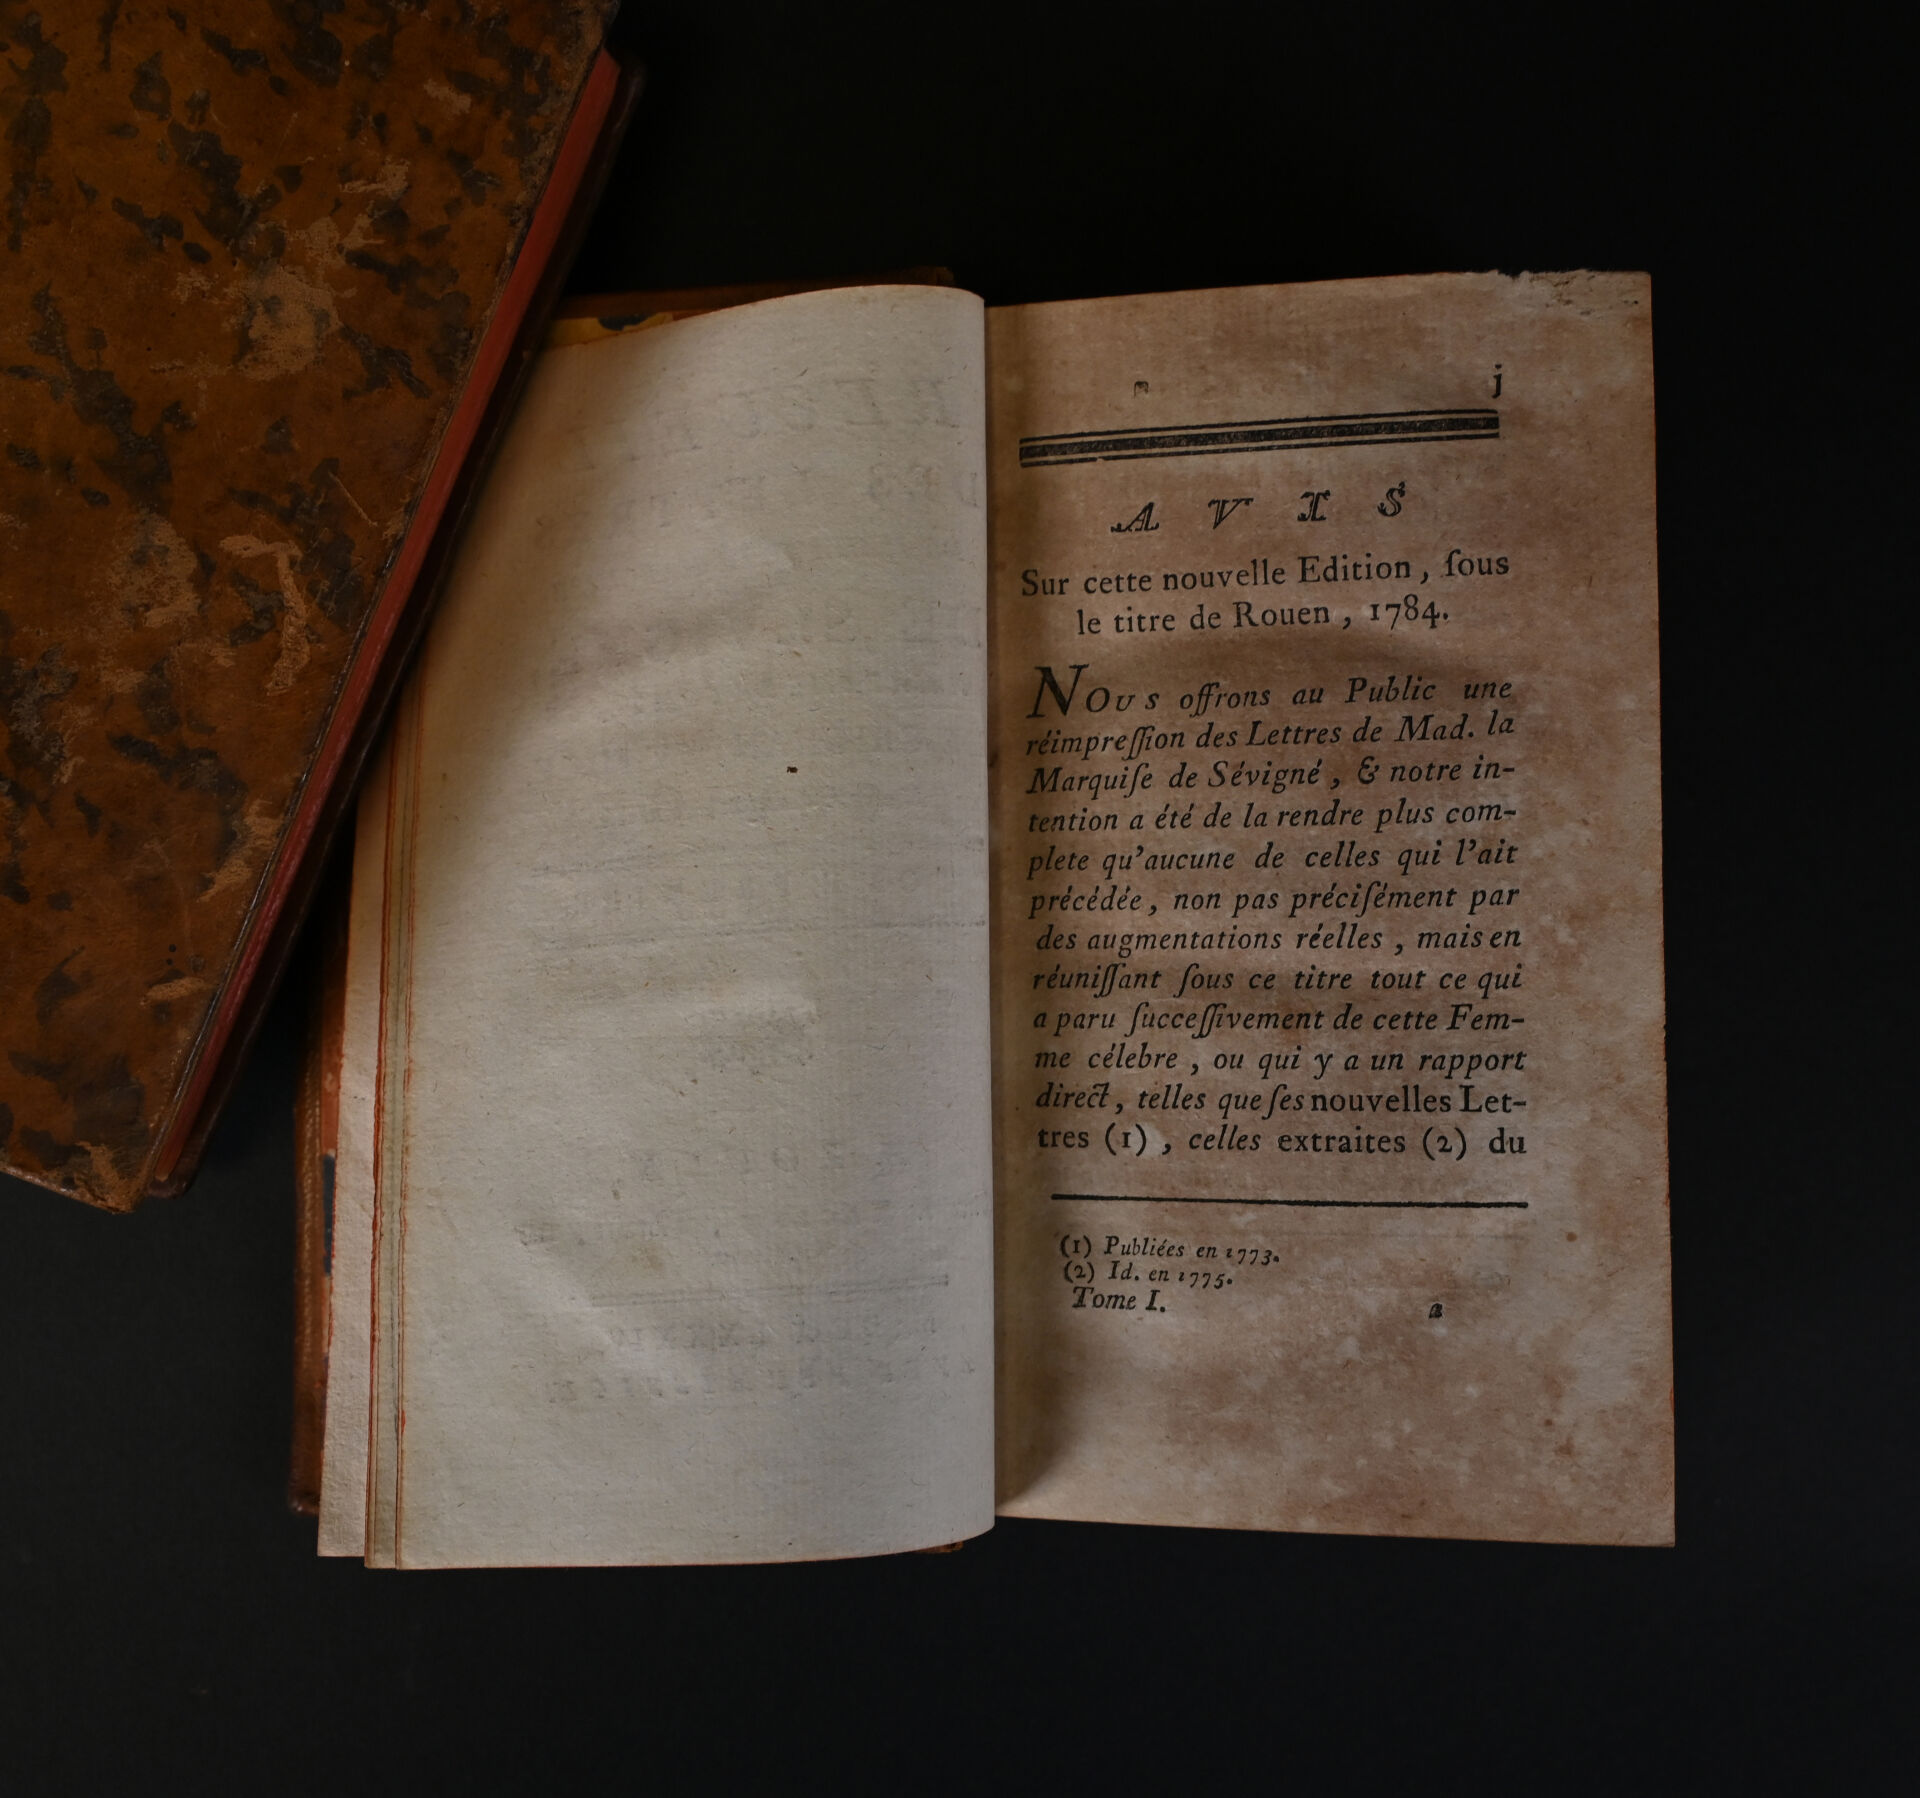 j
AVIS
Sur cette nouvelle Edition, ſous
le titre de Rouen, 1784.
Nous offrons au Public une
réimpreſſion des Lettres de Mad. la
Marquiſe de Sévigné, & notre in-
tention a été de la rendre plus com-
plete qu'aucune de celles qui l'ait
précédée, non pas préciſément par
des augmentations réelles, mais en
réuniſſant ſous ce titre tout ce qui
a paru ſucceſſivement de cette Fem-
me célebre, ou qui y a un rapport
direct, telles que ſes nouvelles Let-
tres (1), celles extraites (2) du
(1) Publiées en 1773.
(2) Id. en 1775.
Tome I. a